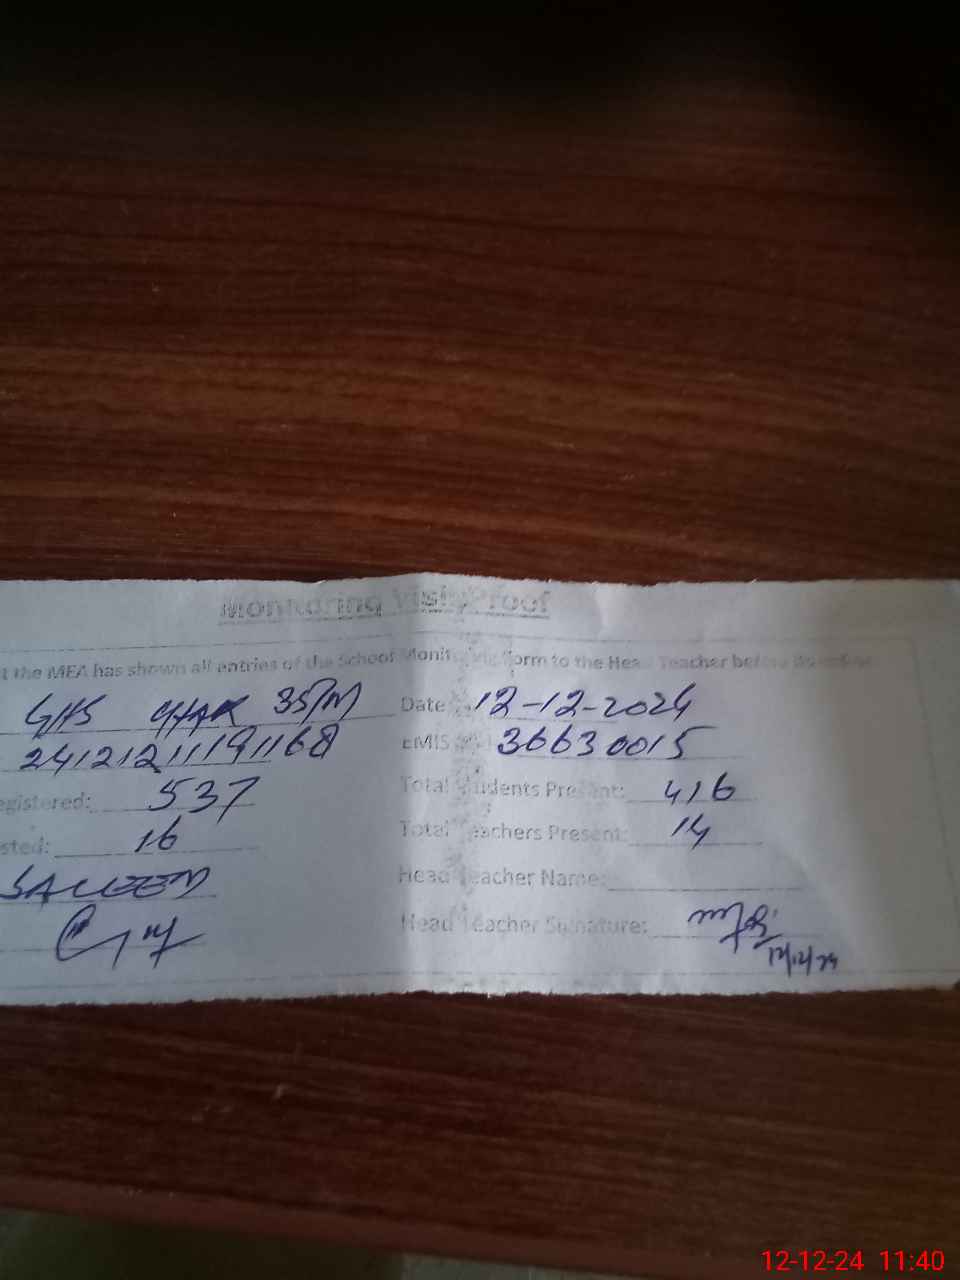 Monitoring Visit Proof
t the MEA has shown all entries of the School Monitoring form to the Head Teacher before
GHS CHAK 35/M Date: 12-12-2024
24121211191168 EMIS 36630015
egistered: 537 Total Students Present: 416
sted: 16 Total Teachers Present: 14
SALEEM Head Teacher Name:
Head Teacher Signature:
12/12/24
12-12-24 11:40